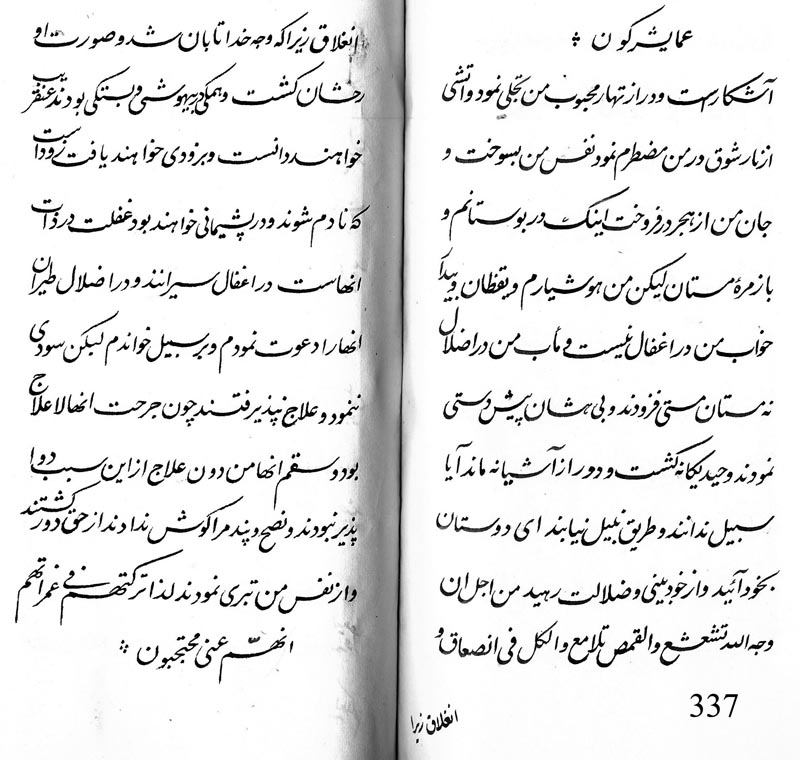 عمایشرکون ❊
آشکار است و در ازتهار محبوب من تجلی نمود و اتشی
از نار شوق در من مضطرم نمود نفس من بسوخت و
جان من از هجر درفروخت اینک در بوستانم و
با زمرهٔ مستان لیکن من هوشیارم و یقظان و بیدار
خواب من در اغفال نیست و مأب من در اضلال
نه مستان مستی فزودند و بی هشان پیش دستی
نمودند وحید یکانه کشت و دور از آشیانه ماند آیا
سبیل ندانند و طریق نبیل نیابند ای دوستان
بخود آئید و از خود بینی و ضلالت رهید من اجل ان
وجه الله تشعشع و القمص تلامع و الکل فی انصعاق و
انغلاق زیرا
337
انغلاق زیرا که وجه خدا تابان شد و صورت او
رخشان کشت و همکی در بیهوشی و بستکی بودند عنقریب
خواهند دانست و بزودی خواهند یافت زود است
که نادم شوند و در پشیمانی خواهند بود غفلت در ذات
انهاست در اغفال سیرانند و در اضلال طیران
انها را دعوت نمودم و بر سبیل خواندم لیکن سودی
ننمود و علاج نپذیرفتند چون جرحت انها لا علاج
بود و سقم انها من دون علاج از این سبب دوا
پذیر نبودند و نصح و پند مرا کوش ندادند از حق دور کشتند
و از نفس من تبری نمودند لذا ترکتهم فی غمراتهم
انهم عنی محتجبون ❊